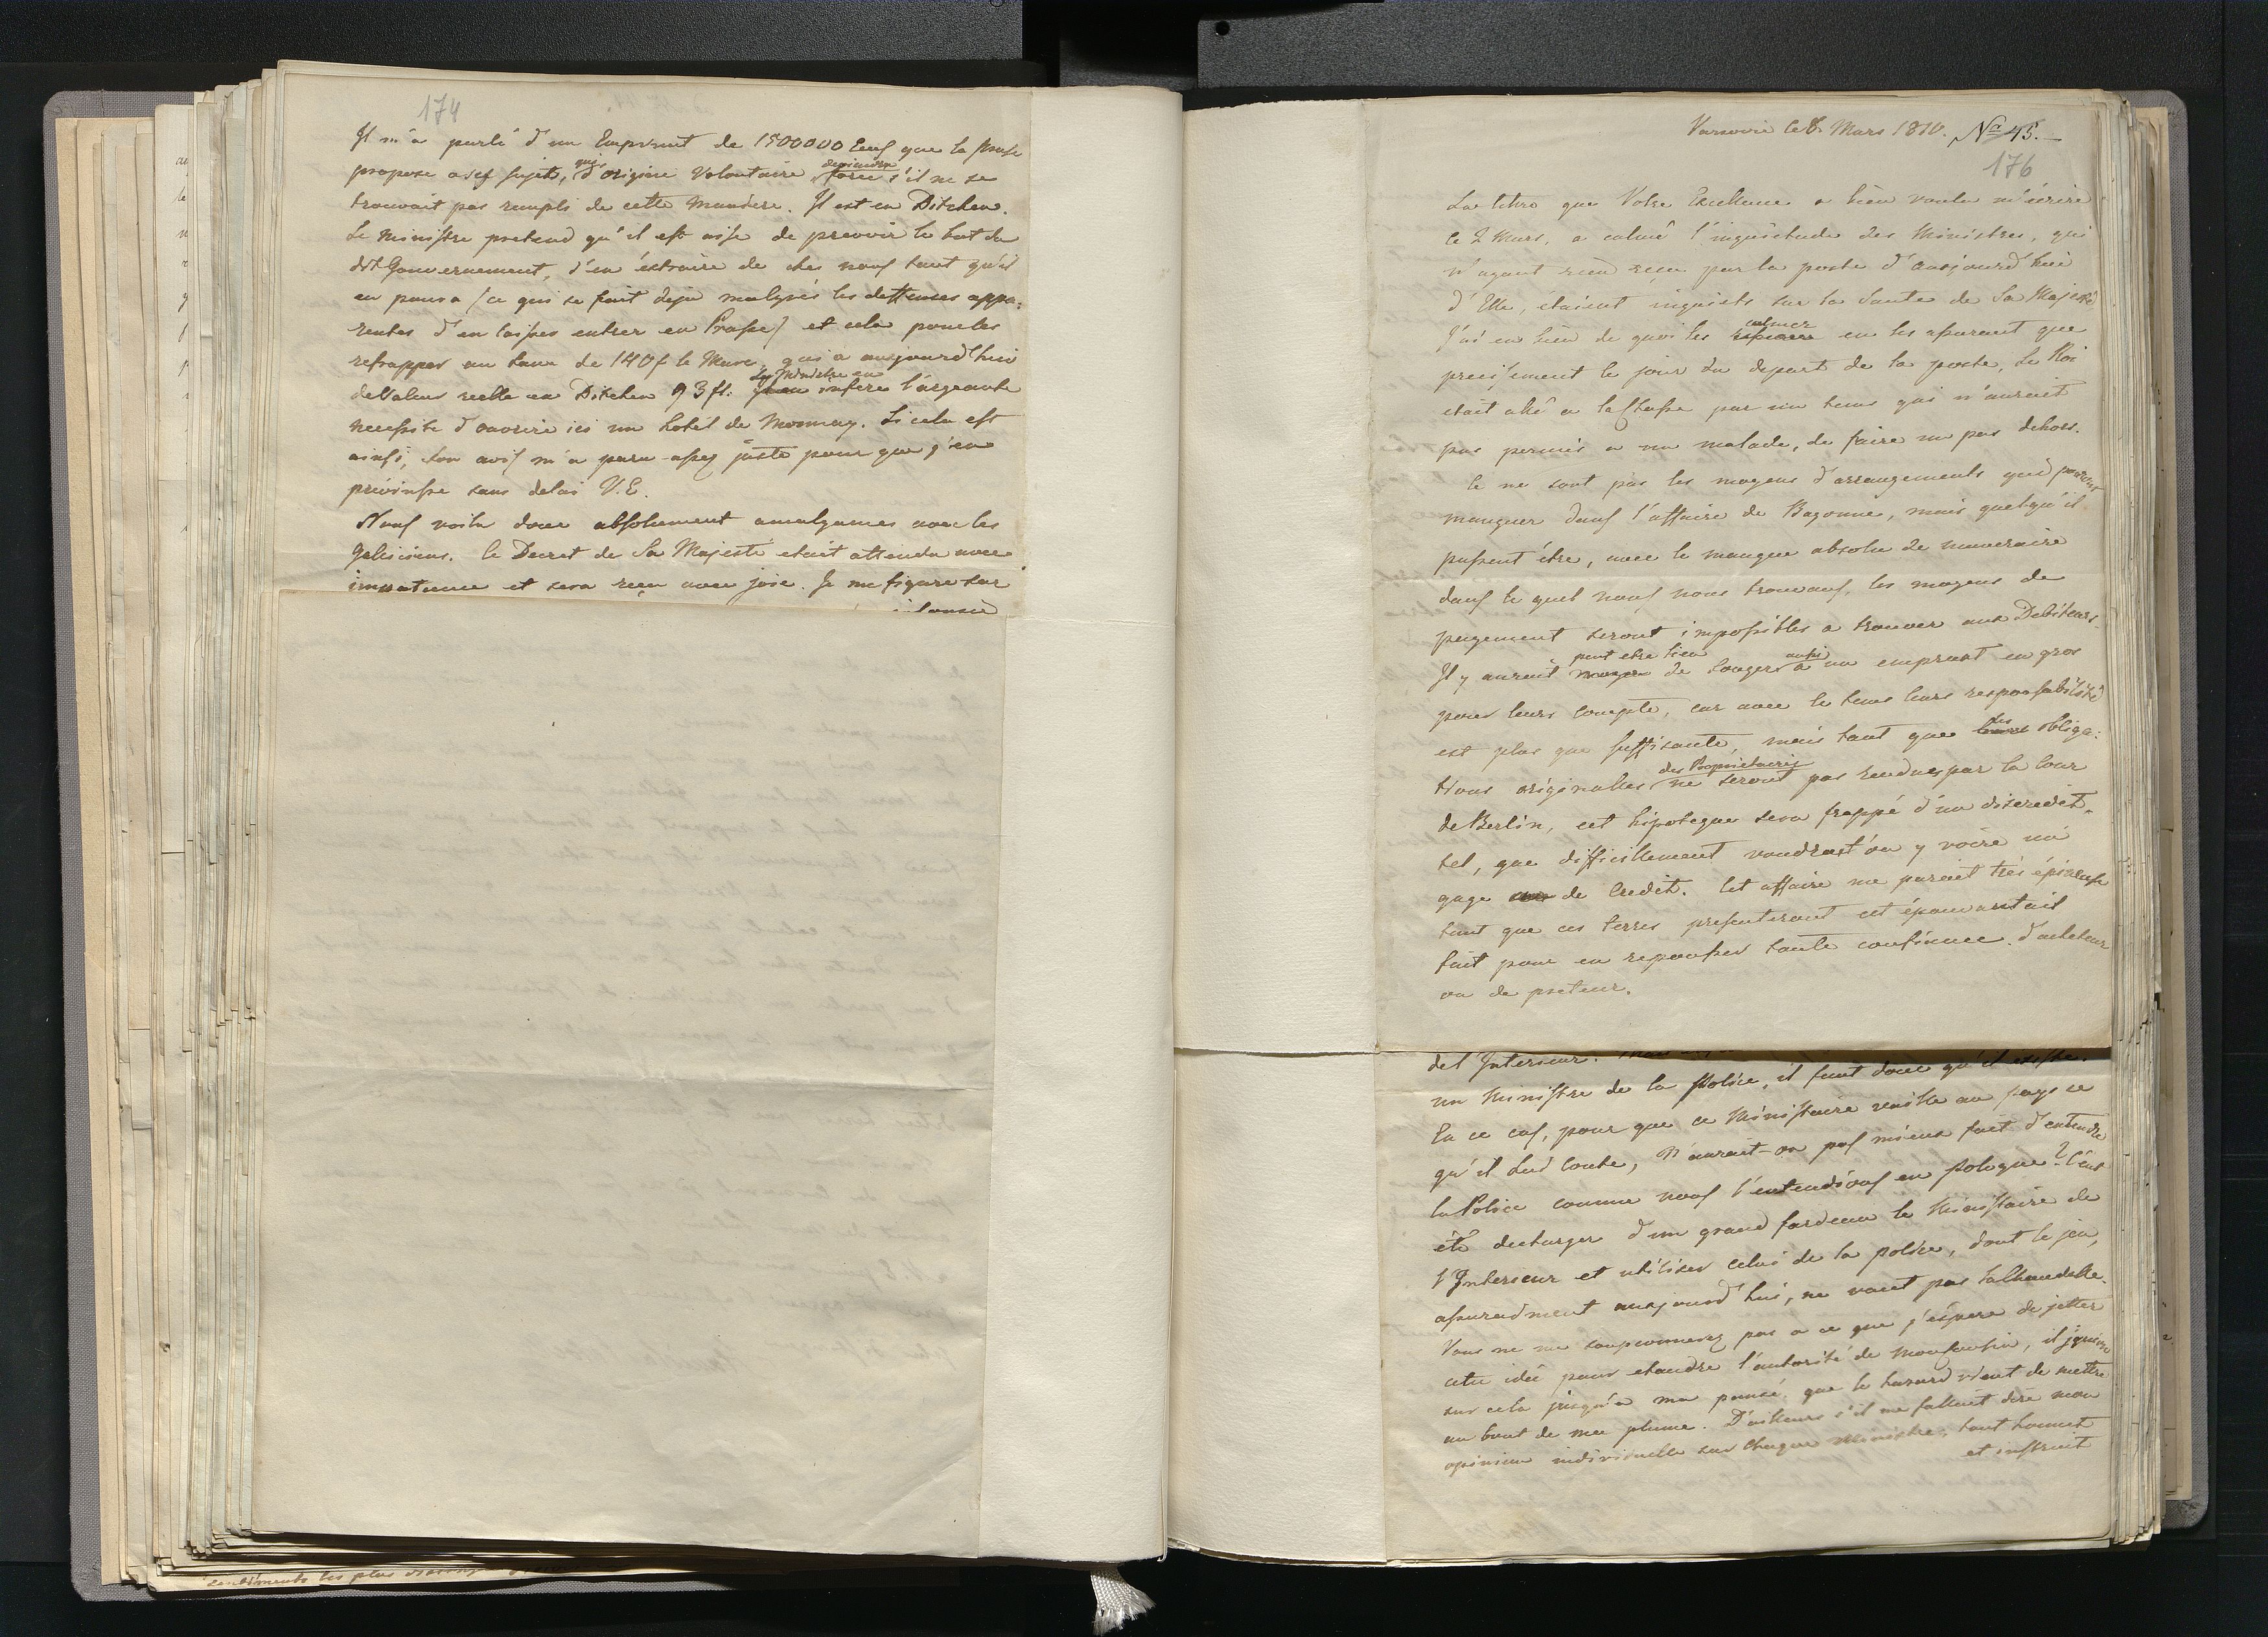 174
Il m'a parlé d'un Emprunt de 1500000 Ecus que la Prusse
propose a ses sujets, qui d'origine Volontaire deviendra forcé s'il ne se
trouvait pas rempli de cette maniere. Il est en Ditchen.
Le Ministre pretend qu'il est aise de prevoir le but du
dit Gouvernement, d'en éxtraire de chez nous tant qu'il
en poura (ce qui se fait deja malgrés les deffenses appa:
rentes d'en laisser entrer en Prusse) et cela pour les
refrapper au taux de 140 f le Marc, qui a aujourd'hui
de Valeur reelle en Ditchen 93 fl: Le Ministre en infere l'urgeante
necessité d'ouvrire ici un hotél de Monnay. Si cela est
ainsi, son avis m'a paru assez juste pour que j'en
previnsse sans delai V.E.
Nous voila donc absolument amalgames avec les
Galiciens. le Decret de Sa Majesté etait attendu avec
impatience et sera reçu avec joie. Je me figure sur
Varsovie le 8. Mars 1810. No 45.
176
La lettre que Votre Excellence a bien voulu m'écrire
le 2 Mars, a calmé l'inquiétude des Ministres, qui
n'ayant rien reçu par la poste d'aujourd'hui
d'Elle, étaient inquiets sur la Santé de Sa Majesté
J'ai eu bien de quoi les calmer en les assurant que
precisement le jour du depart de la poste, Le Roi
etait allé a la Chasse par un tems qui n'aurait
pas permis a un malade, de faire un pas dehors.
Ce ne sont pas les moyens d'arrangements qui pouront
manquer dans l'affaire de Bayonne, mais quelqu'il
pussent être, avec le manque absolu de numeraire
dans le quel nous nous trouvons, les moyens de
payement seront impossibles a trouver aux Debiteurs.
Il y aurait peut etre lieu de songer aussi a un emprunt en gros
pour leurs compte, car avec le tems leurs responsabilité
est plus que suffisante, mais tant que les obliga:
tions originalles des Proprietaires ne seront pas rendues par la Cour
de Berlin, cet hipoteque sera frappé d'un discredit
tel, que difficillement voudrast'on y voire un
gage de Credit. Cet affaire me parait très épineuse
tant que ces terres presenteront cet épouvantail
fait pour en repousser toute confience. d'acheteur
ou de preteur.
del'Interieur.
un Ministre de la Police, il faut donc qu'il existe.
En ce cas, pour que ce Ministaire vaille au pays ce
qu'il Lui Coute, n'aurait-on pas mieux fait d'entendre
la Police comme nous l'entendions en Pologne? C'eut
été decharger d'un grand fardeau le Ministaire de
l'Interieur et utiliser Celui de la police, dont le jeu,
assurement aujourd'hui, ne vaut pas la Chandelle.
Vous ne me soupconnerez pas a ce que j'éspere de jetter
cette idée pour etandre l'autorité de mon Cousin, il ignore
sur cela jusqu'a ma pensée, que le hazard vient de mettre
au bout de ma plume. D'ailleurs s'il me fallait dire mon
opinion individuelle sur Chaque Ministre, tout honnet
et instruit